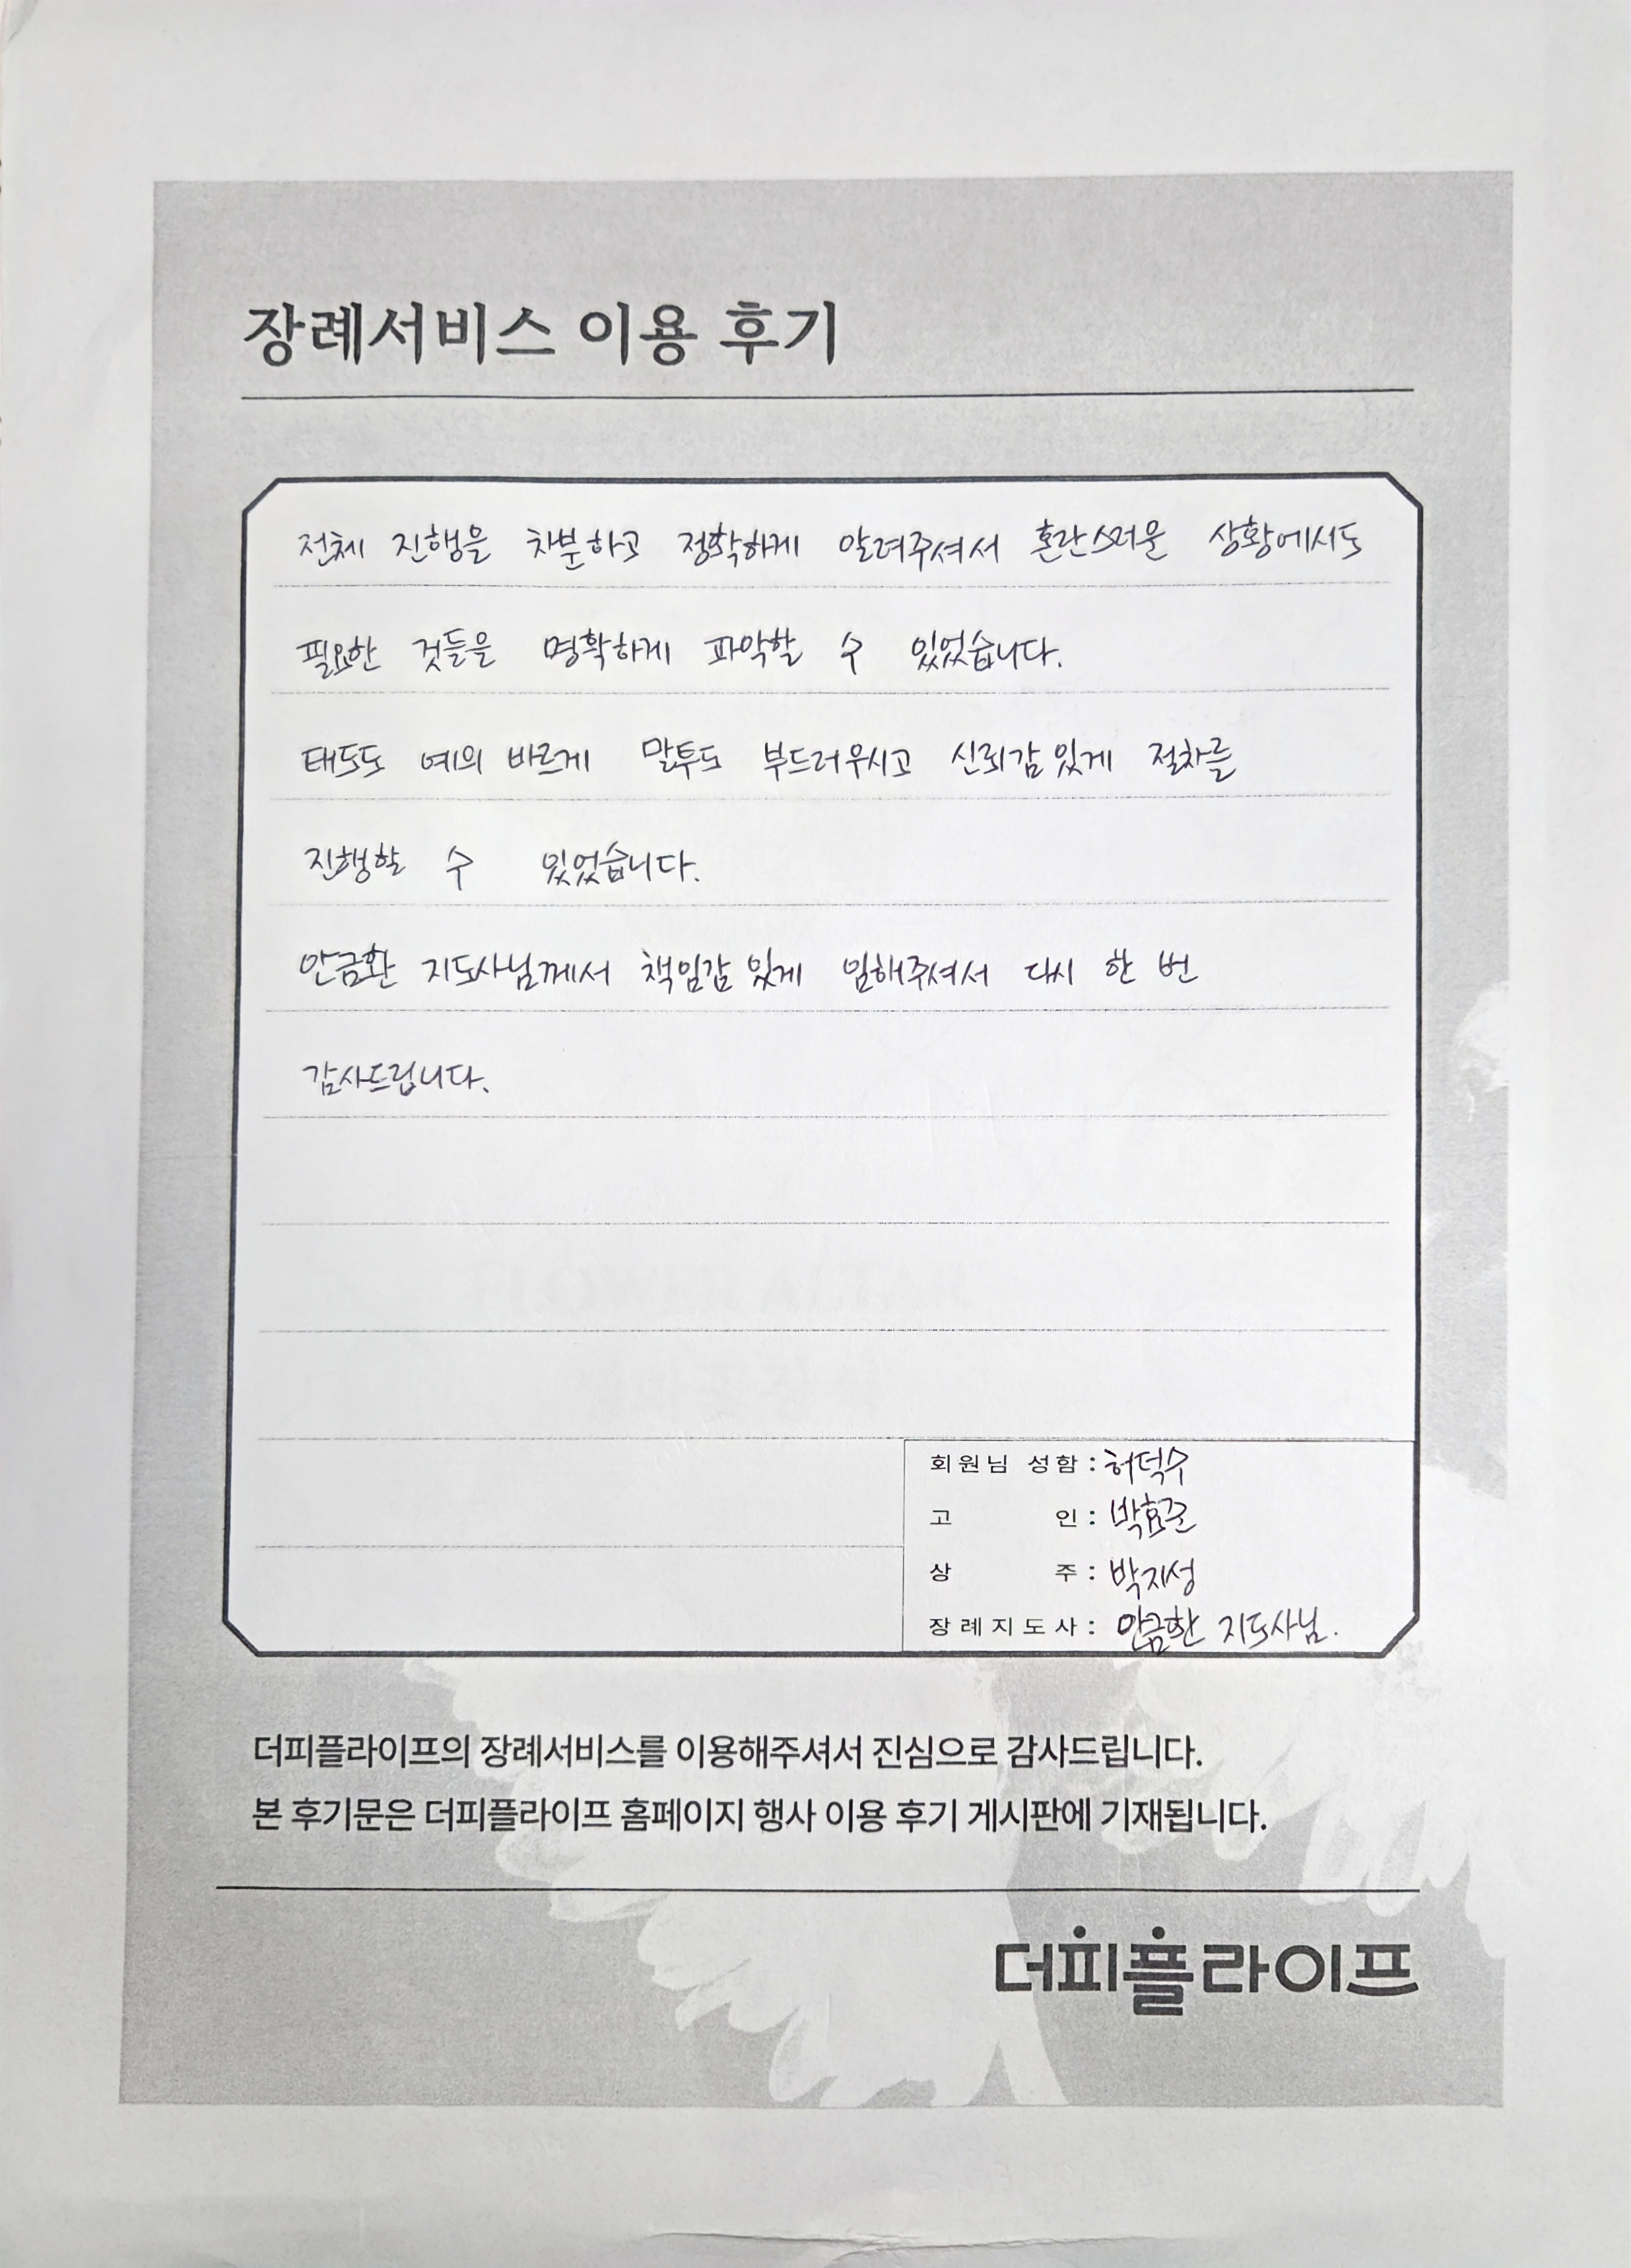 장례서비스 이용 후기
전체 진행을 차분하고 정확하게 알려주셔서 혼란스러운 상황에서도
필요한 것들을 명확하게 파악할 수 있었습니다.
태도도 예의 바르게 말투도 부드러우시고 신뢰감있게 절차를
진행할 수 있었습니다.
안금환 지도사님께서 책임감있게 임해주셔서 다시 한 번
감사드립니다.
회원님 성함 : 허덕수
고 인 : 박효근
상 주 : 박지성
장례지도사 : 안금환 지도사님.
더피플라이프의 장례서비스를 이용해주셔서 진심으로 감사드립니다.
본 후기문은 더피플라이프 홈페이지 행사 이용 후기 게시판에 기재됩니다.
더피플라이프